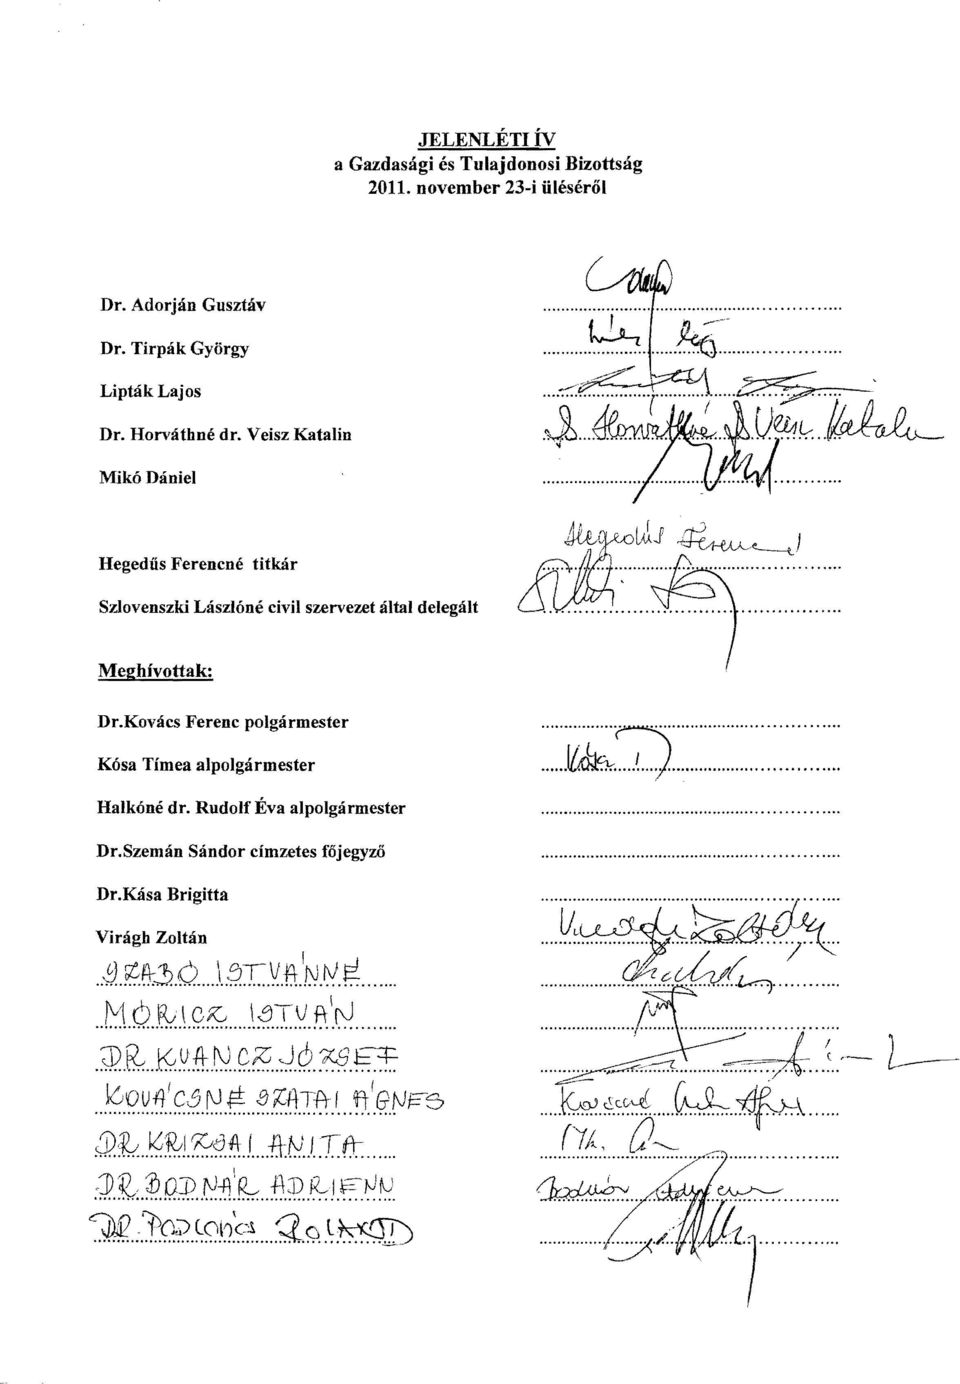 JELENLÉTI ÍV
a Gazdasági és Tulajdonosi Bizottság
2011. november 23-i üléséről
Dr. Adorján Gusztáv
Dr. Tirpák György
Lipták Lajos
Dr. Horváthné dr. Veisz Katalin Horváthné Veisz Katalin
Mikó Dániel
Hegedűs Ferencné titkár Hegedűs Ferencné
Szlovenszki Lászlóné civil szervezet által delegált
Meghívottak:
Dr.Kovács Ferenc polgármester
Kósa Tímea alpolgármester Kósa T
Halkóné dr. Rudolf Éva alpolgármester
Dr.Szemán Sándor címzetes főjegyző
Dr.Kása Brigitta
Virágh Zoltán Virágh Zoltán
SZABÓ ISTVÁNNÉ
MÓRICZ ISTVÁN
DR. KVANCZ JÓZSEF
KOVÁCSNÉ SZATAI ÁGNES
DR KRIZSAI ANITA
DR BODNÁR ADRIENN Bodnár Adrienn
DR.